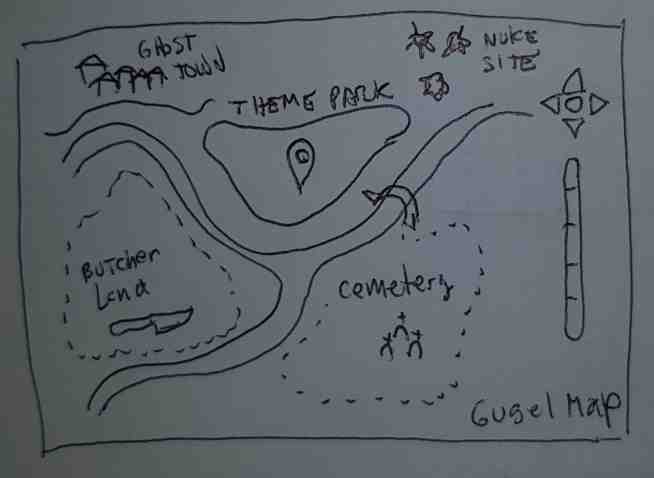 GHOST
TOWN
NUKE
SITE
THEME PARK
Butcher
Land
cemetery
Gugel Map